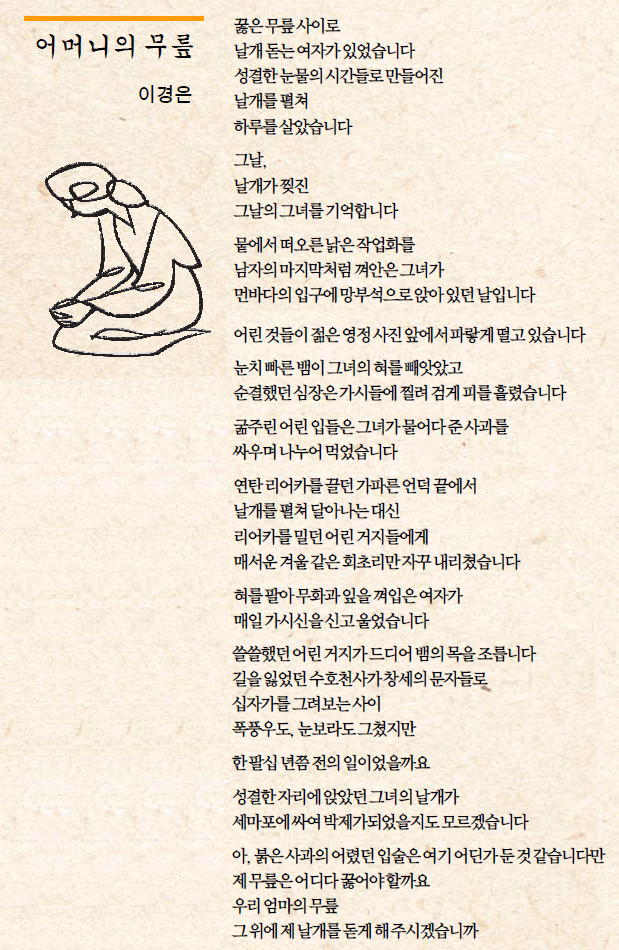 어머니의 무릎
이경은
꿇은 무릎 사이로
날개 돋는 여자가 있었습니다
성결한 눈물의 시간들로 만들어진
날개를 펼쳐
하루를 살았습니다
그날,
날개가 찢진
그날의 그녀를 기억합니다
뭍에서 떠오른 낡은 작업화를
남자의 마지막처럼 껴안은 그녀가
먼바다의 입구에 망부석으로 앉아 있던 날입니다
어린 것들이 젊은 영정 사진 앞에서 파랗게 떨고 있습니다
눈치 빠른 뱀이 그녀의 혀를 빼앗았고
순결했던 심장은 가시들에 찔려 검게 피를 흘렸습니다
굶주린 어린 입들은 그녀가 물어다 준 사과를
싸우며 나누어 먹었습니다
연탄 리어카를 끌던 가파른 언덕 끝에서
날개를 펼쳐 달아나는 대신
리어카를 밀던 어린 거지들에게
매서운 겨울 같은 회초리만 자꾸 내리쳤습니다
혀를 팔아 무화과 잎을 껴입은 여자가
매일 가시신을 신고 울었습니다
쓸쓸했던 어린 거지가 드디어 뱀의 목을 조릅니다
길을 잃었던 수호천사가 창세의 문자들로
십자가를 그려보는 사이
폭풍우도, 눈보라도 그쳤지만
한 팔십 년쯤 전의 일이었을까요
성결한 자리에 앉았던 그녀의 날개가
세마포에 싸여 박제가 되었을지도 모르겠습니다
아, 붉은 사과의 어렸던 입술은 여기 어딘가 둔 것 같습니다만
제 무릎은 어디다 꿇어야 할까요
우리 엄마의 무릎
그 위에 제 날개를 돋게 해 주시겠습니까